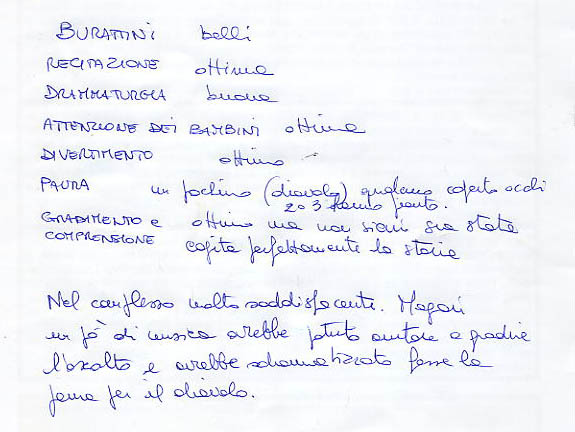 BURATTINI belli
RECITAZIONE ottima
DRAMMATURGIA buona
ATTENZIONE DEI BAMBINI ottima
DIVERTIMENTO ottimo
PAURA un pochino (diavolo) qualcuno coperto occhi
2 o 3 hanno pianto.
GRADIMENTO e ottimo ma non sicuri sia stata
COMPRENSIONE capita perfettamente la storia
Nel complesso molto soddisfacente. Magari
un pò di musica avrebbe potuto aiutare a gradire
l'ascolto e avrebbe sdramatizzato forse la
paura per il diavolo.